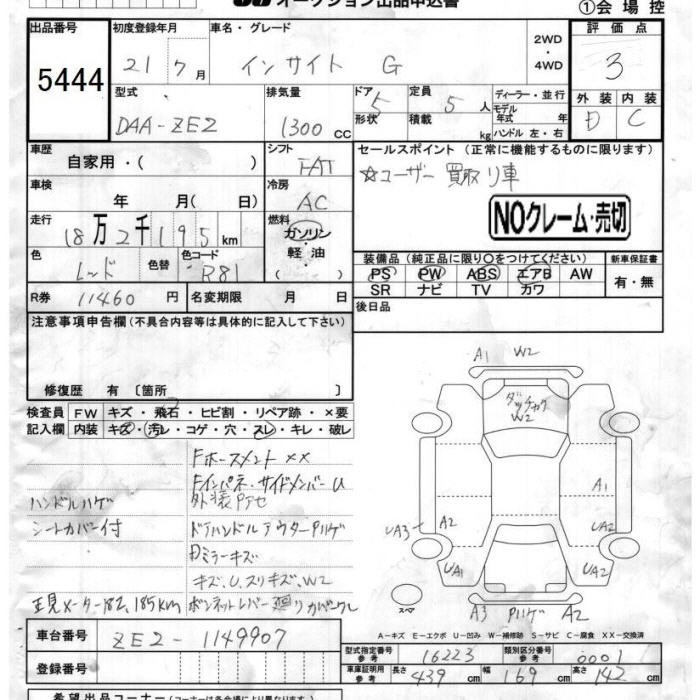 オークション出品申込書
①会場控
出品番号 初度登録年月 車名・グレード 2WD・4WD 評価点
5444 21 7月 インサイト G 3
型式 排気量 ドア 形状 5 定員 5人 積載 kg ディーラー・並行 モデル年式 年 ハンドル 左・右 外装 内装
DAA-ZE2 1300 CC D C
車歴 シフト セールスポイント (正常に機能するものに限ります)
自家用・( ) FAT ☆ユーザー買取り車
車検 冷房
年 月( 日) AC NOクレーム・売切
走行 燃料
18万2千195km ガソリン・軽油・( )
色 色替 色コード 装備品 (純正品に限り○をつけてください) 新車保証書
レッド R81 PS PW ABS エアB AW 有・無
SR ナビ TV カワ
R券 11460円 名変期限 月 日 後日品
注意事項申告欄(不具合内容等は具体的に記入して下さい)
修復歴 有〔箇所
検査員 FW キズ・飛石・ヒビ割・リペア跡・×要
記入欄 内装 キズ・汚レ・コゲ・穴・スレ・キレ・破レ
A1 W2
W2
A1
UA3 A2 UA2
UA1 UA2
スペア
A3 Pハゲ A2
Fホースメント××
Fインパネ・サイドメンバーU
ハンドルハゲ
シートカバー付 ドアハンドルアウターPハゲ
Dミラーキズ
キズ、U、スリキズ、W2
正見メーター182,185km ボンネットレバー廻りカバーワレ
A-キズ E-エクボ U-凹み W-補修跡 S-サビ C-腐食 XX-交換済
車台番号 ZE2-1149907
型式指定番号 参考 16223 類別区分番号 参考 0001
登録番号
車庫証明用 参考 長さ 439cm 幅 169cm 高さ 142cm
希望出品コーナー(コーナーは各会場により異なります)